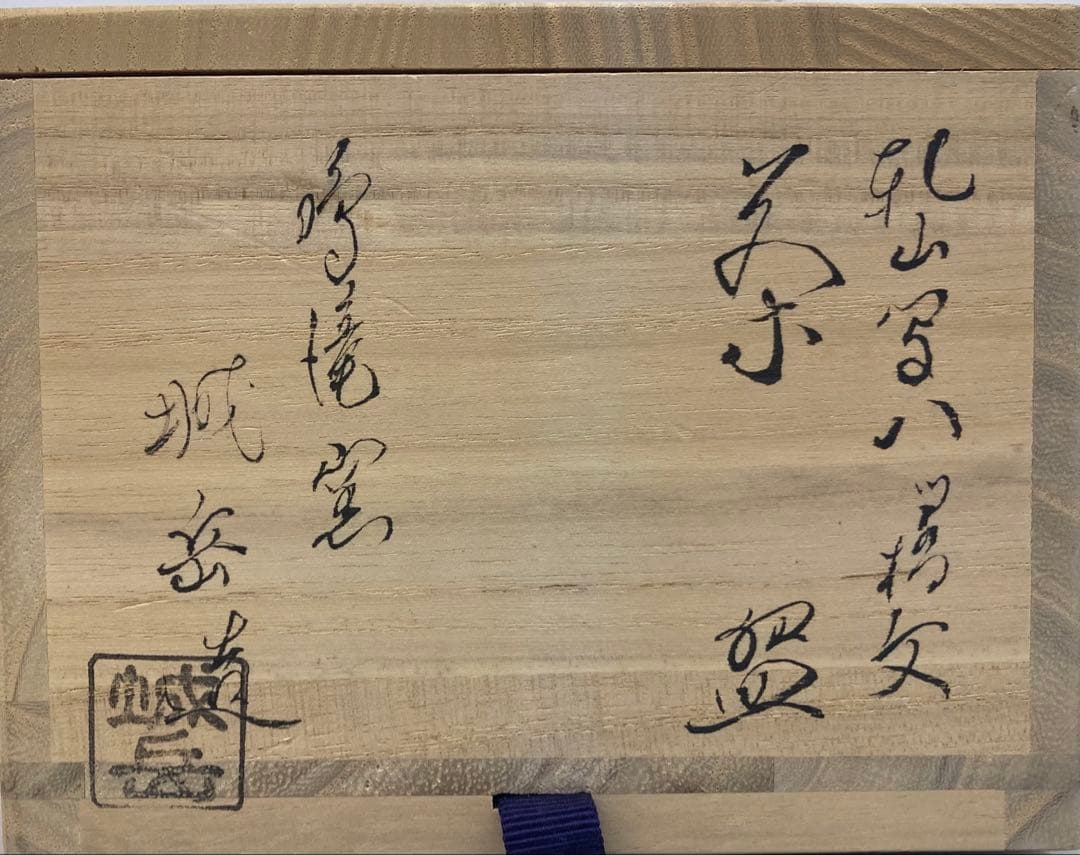 乾山写八ツ橋文
茶盌
鳴滝窯
城岳造
城岳